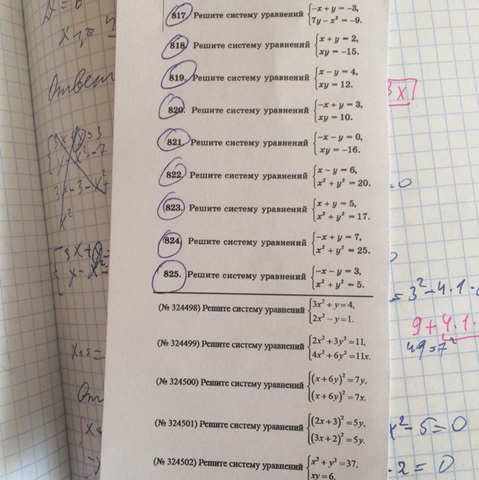 817. Решите систему уравнений {-x + y = -3,
7y - x² = -9.
818. Решите систему уравнений {x + y = 2,
xy = -15.
819. Решите систему уравнений {x - y = 4,
xy = 12.
820. Решите систему уравнений {-x + y = 3,
xy = 10.
821. Решите систему уравнений {-x - y = 0,
xy = -16.
822. Решите систему уравнений {x - y = 6,
x² + y² = 20.
823. Решите систему уравнений {x + y = 5,
x² + y² = 17.
824. Решите систему уравнений {-x + y = 7,
x² + y² = 25.
825. Решите систему уравнений {-x - y = 3,
x² + y² = 5.
(№ 324498) Решите систему уравнений {3x² + y = 4,
2x² - y = 1.
(№ 324499) Решите систему уравнений {2x² + 3y² = 11,
4x² + 6y² = 11x.
(№ 324500) Решите систему уравнений {(x + 6y)² = 7y,
(x + 6y)² = 7x.
(№ 324501) Решите систему уравнений {(2x + 3)² = 5y,
(3x + 2)² = 5y.
(№ 324502) Решите систему уравнений {x² + y² = 37,
xy = 6.
Ответ
3x
= 0
= 3² - 4·1·
9 + 4·1·
49 = 7²
x² - 5 = 0
·2 = 0